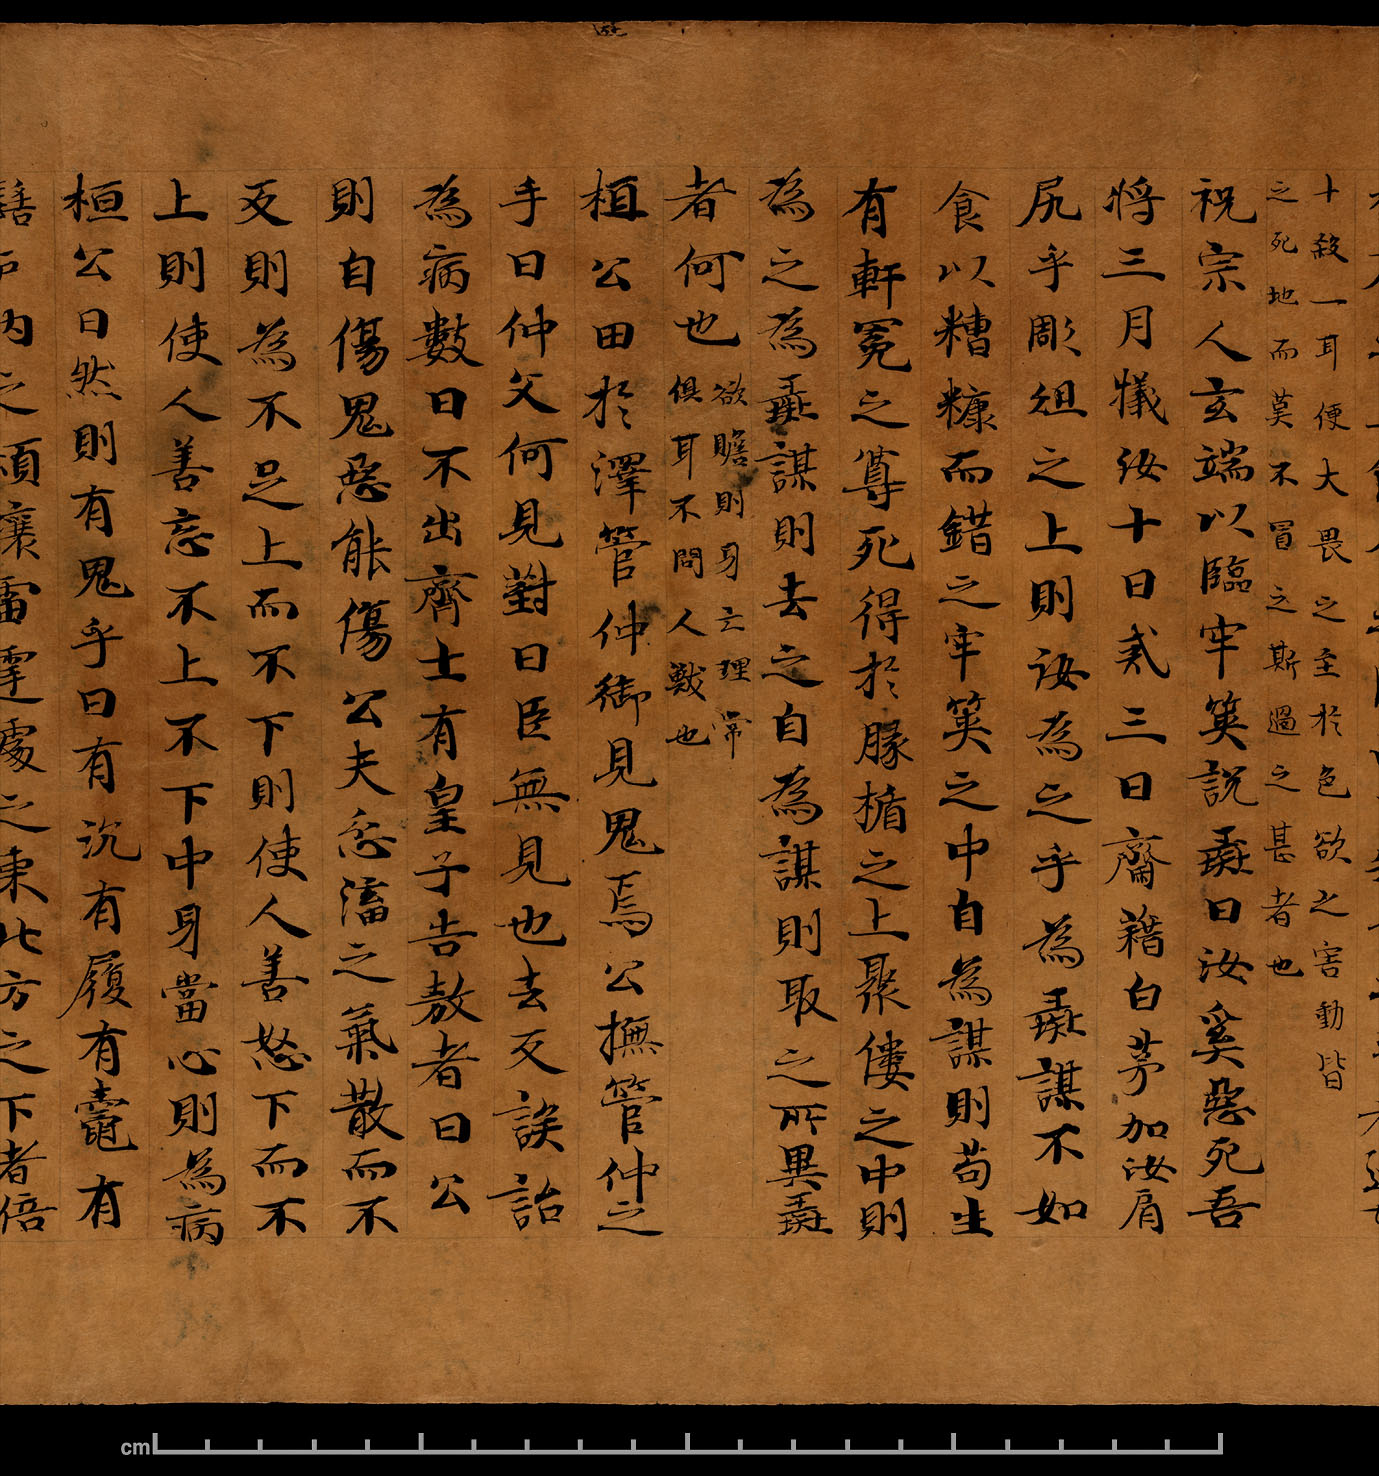 十殺一耳便大畏之至於色欲之害動皆
之死地而莫不冒之斯過之甚者也
祝宗人玄端以臨牢筴說彘曰汝奚惡死吾
將三月犧汝十日貳三日齋藉白茅加汝肩
尻乎彫俎之上則汝為之乎為彘謀不如
食以糟糠而錯之牢筴之中自為謀則苟生
有軒冕之尊死得於腞楯之上聚僂之中則
為之為彘謀則去之自為謀則取之所異彘
者何也
欲贍則身亡理常
俱耳不問人獸也
桓公田於澤管仲御見鬼焉公撫管仲之
手曰仲父何見對曰臣無見也去反誒詒
為病數日不出齊士有皇子告敖者曰公
則自傷鬼惡能傷公夫忿滀之氣散而不
反則為不足上而不下則使人善怒下而不
上則使人善忘不上不下中身當心則為病
桓公曰然則有鬼乎曰有沉有履有竈有
髻戶內之煩壤雷霆處之東北方之下者倍
cm